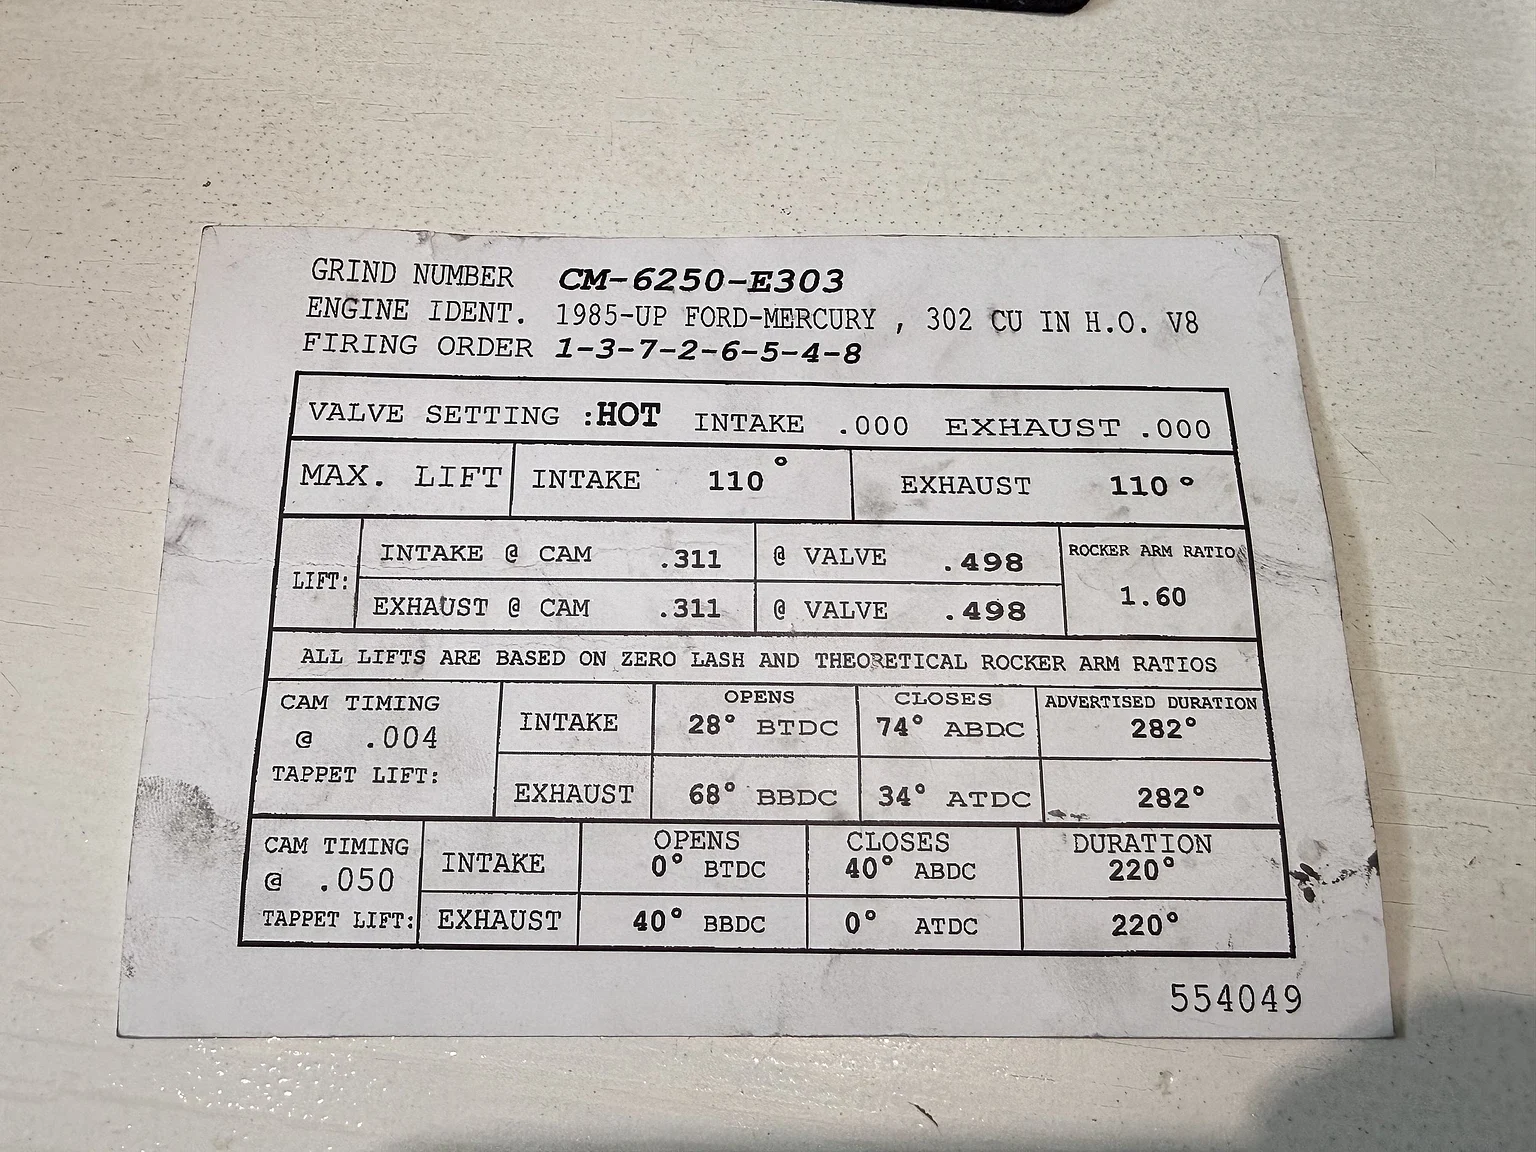 GRIND NUMBER CM-6250-E303
ENGINE IDENT. 1985-UP FORD-MERCURY , 302 CU IN H.O. V8
FIRING ORDER 1-3-7-2-6-5-4-8
VALVE SETTING :HOT INTAKE .000 EXHAUST .000
MAX. LIFT INTAKE 110° EXHAUST 110°
LIFT: INTAKE @ CAM .311 @ VALVE .498 ROCKER ARM RATIO
EXHAUST @ CAM .311 @ VALVE .498 1.60
ALL LIFTS ARE BASED ON ZERO LASH AND THEORETICAL ROCKER ARM RATIOS
CAM TIMING OPENS CLOSES ADVERTISED DURATION
@ .004 INTAKE 28° BTDC 74° ABDC 282°
TAPPET LIFT: EXHAUST 68° BBDC 34° ATDC 282°
CAM TIMING OPENS CLOSES DURATION
@ .050 INTAKE 0° BTDC 40° ABDC 220°
TAPPET LIFT: EXHAUST 40° BBDC 0° ATDC 220°
554049